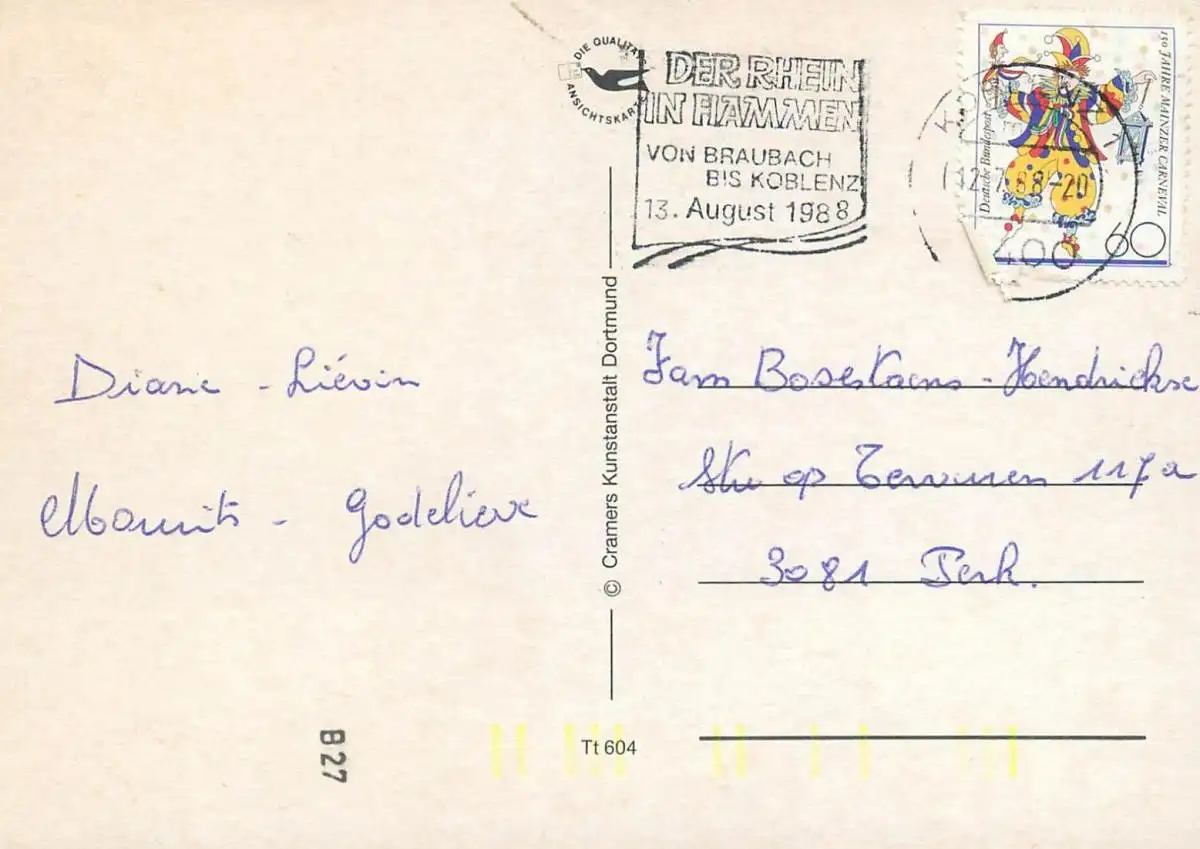 DIE QUALITÄTS
ANSICHTSKARTE
DER RHEIN
IN FLAMMEN
VON BRAUBACH
BIS KOBLENZ
13. August 1988
Deutsche Bundespost
150 JAHRE MAINZER CARNEVAL
60
12.7.88-20
400
Diane - Liévin
Maurits - Godelieve
© Cramers Kunstanstalt Dortmund
Fam Bosestaens - Hendrickx
Stw op Tervuren 117a
3081 Perk.
B27
Tt 604